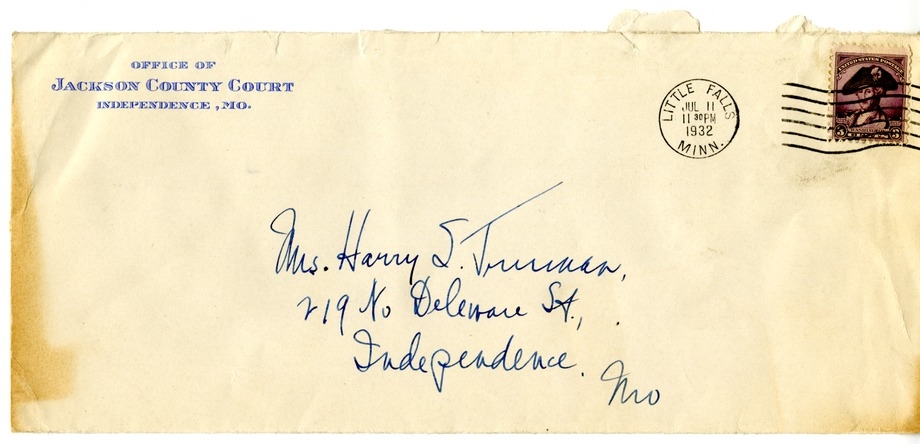 OFFICE OF
JACKSON COUNTY COURT
INDEPENDENCE, MO.
LITTLE FALLS
JUL 11
11 30 PM
1932
MINN.
UNITED STATES POSTAGE
3 WASHINGTON 3
Mrs. Harry S. Truman,
219 No Deleware St.,
Independence.
Mo